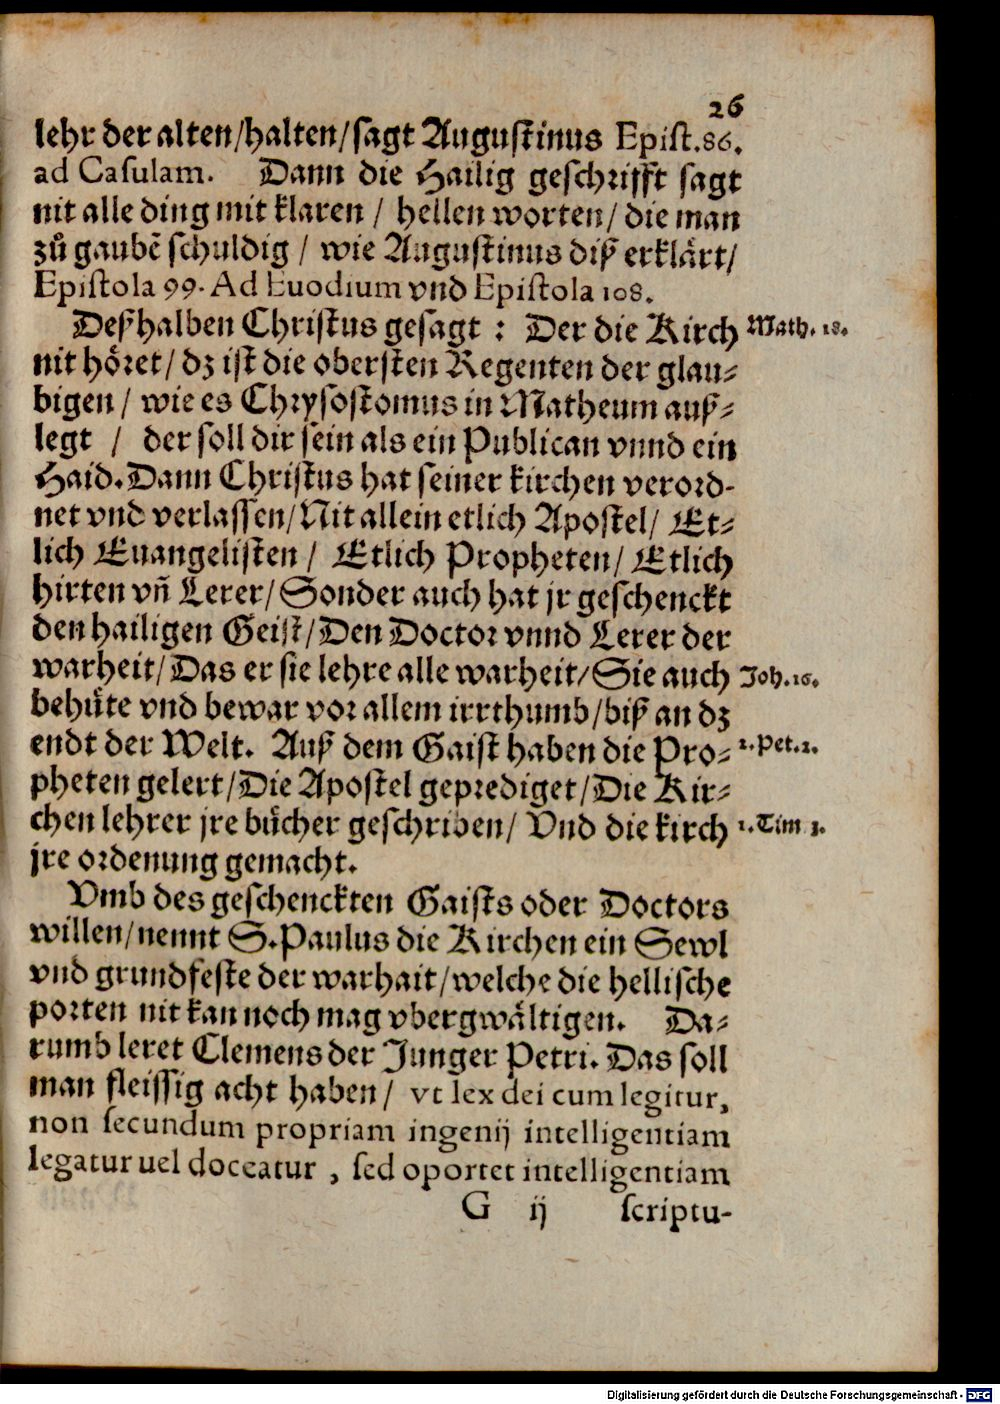 26
lehr der alten/halten/sagt Augustinus Epist.86.
ad Casulam. Dann die Hailig geschrifft sagt
nit alle ding mit klaren / hellen worten/ die man
zů gaubẽ schuldig / wie Augustinus diß erklärt/
Epistola 99. Ad Euodium vnd Epistola 108.
Deßhalben Christus gesagt : Der die Kirch
Math. 18.
nit höret/ dz ist die obersten Regenten der glau-
bigen / wie es Chrysostomus in Matheum auß-
legt / der soll dir sein als ein Publican vnnd ein
Haid. Dann Christus hat seiner kirchen verord-
net vnd verlassen/Nit allein etlich Apostel/ Et-
lich Euangelisten / Etlich Propheten/ Etlich
hirten vñ Lerer/ Sonder auch hat jr geschenckt
den hailigen Geist/Den Doctor vnnd Lerer der
warheit/Das er sie lehre alle warheit/Sie auch
Joh.16.
behüte vnd bewar vor allem irrthumb/biß an dz
endt der Welt. Auß dem Gaist haben die Pro-
1.Pet.1.
pheten gelert/Die Apostel geprediget/Die Kir-
chen lehrer jre bücher geschriben/ Vnd die kirch
1.Tim 3.
jre ordenung gemacht.
Vmb des geschenckten Gaists oder Doctors
willen/nennt S.Paulus die Kirchen ein Sewl
vnd grundfeste der warhait/welche die hellische
porten nit kan noch mag vbergwältigen. Da-
rumb leret Clemens der Junger Petri. Das soll
man fleissig acht haben/ vt lex dei cum legitur,
non secundum propriam ingenij intelligentiam
legatur uel doceatur , sed oportet intelligentiam
G ij scriptu-
Digitalisierung gefördert durch die Deutsche Forschungsgemeinschaft - DFG